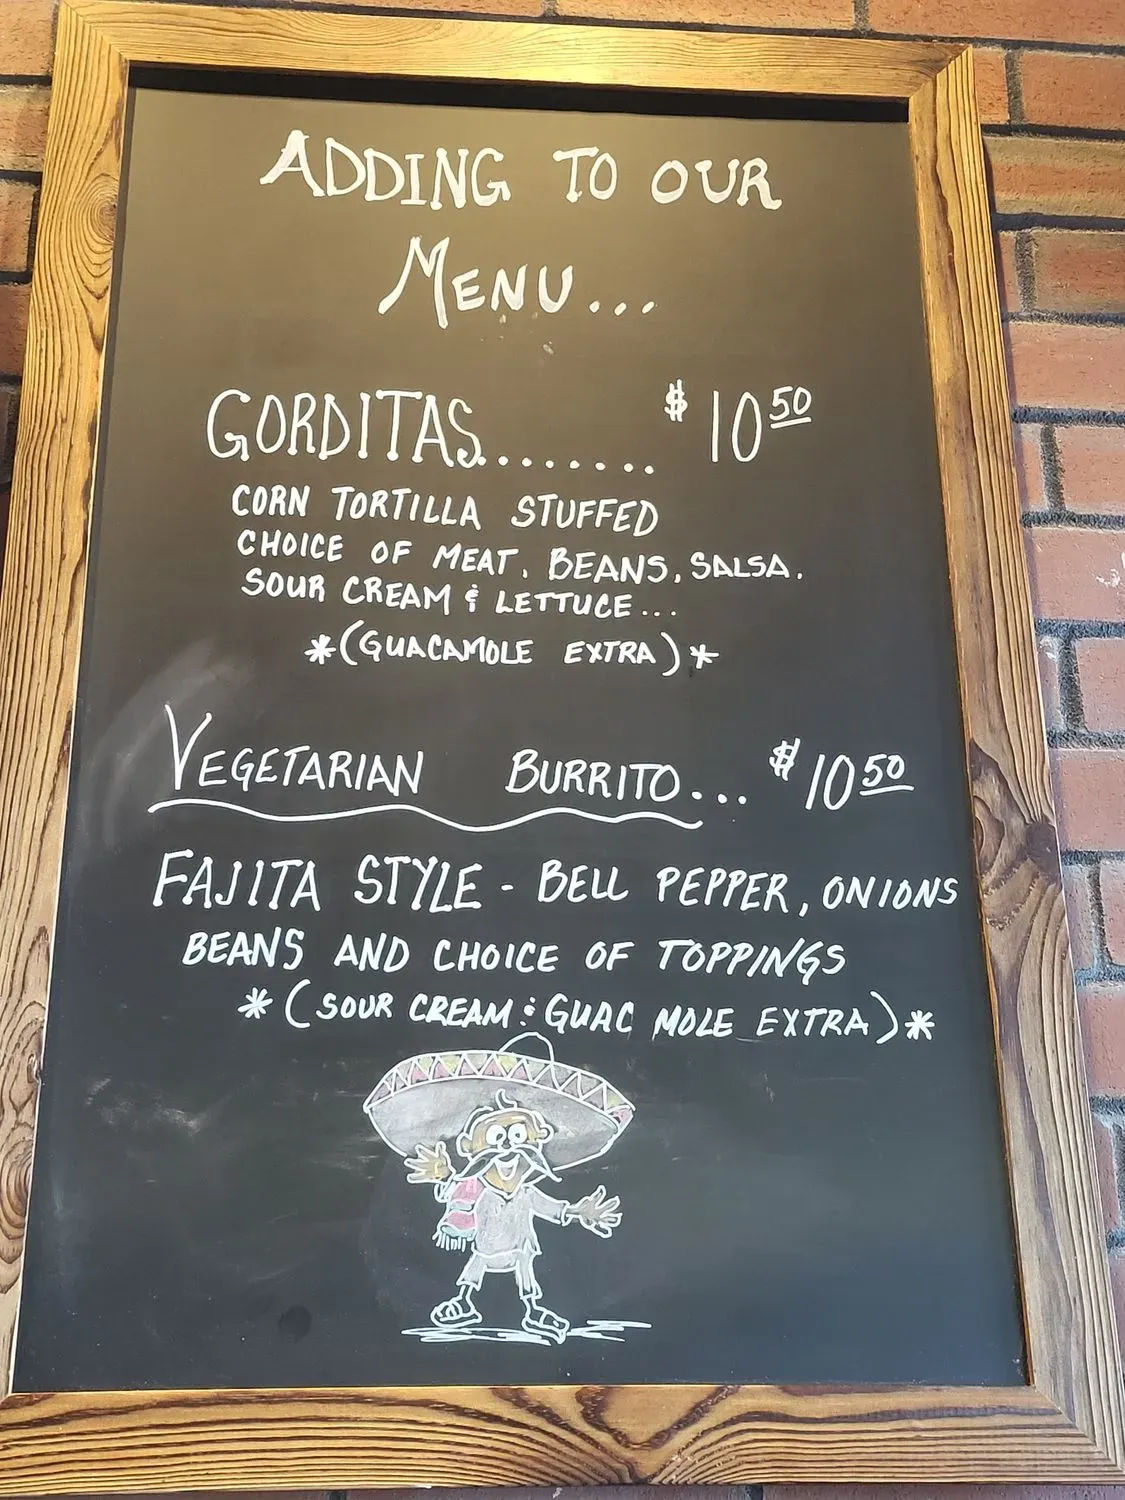 ADDING TO OUR
MENU...
GORDITAS........ $ 10 50
CORN TORTILLA STUFFED
CHOICE OF MEAT, BEANS, SALSA.
SOUR CREAM & LETTUCE...
*(GUACAMOLE EXTRA)*
VEGETARIAN BURRITO... $10 50
FAJITA STYLE - BELL PEPPER, ONIONS
BEANS AND CHOICE OF TOPPINGS
*(SOUR CREAM & GUAC MOLE EXTRA)*